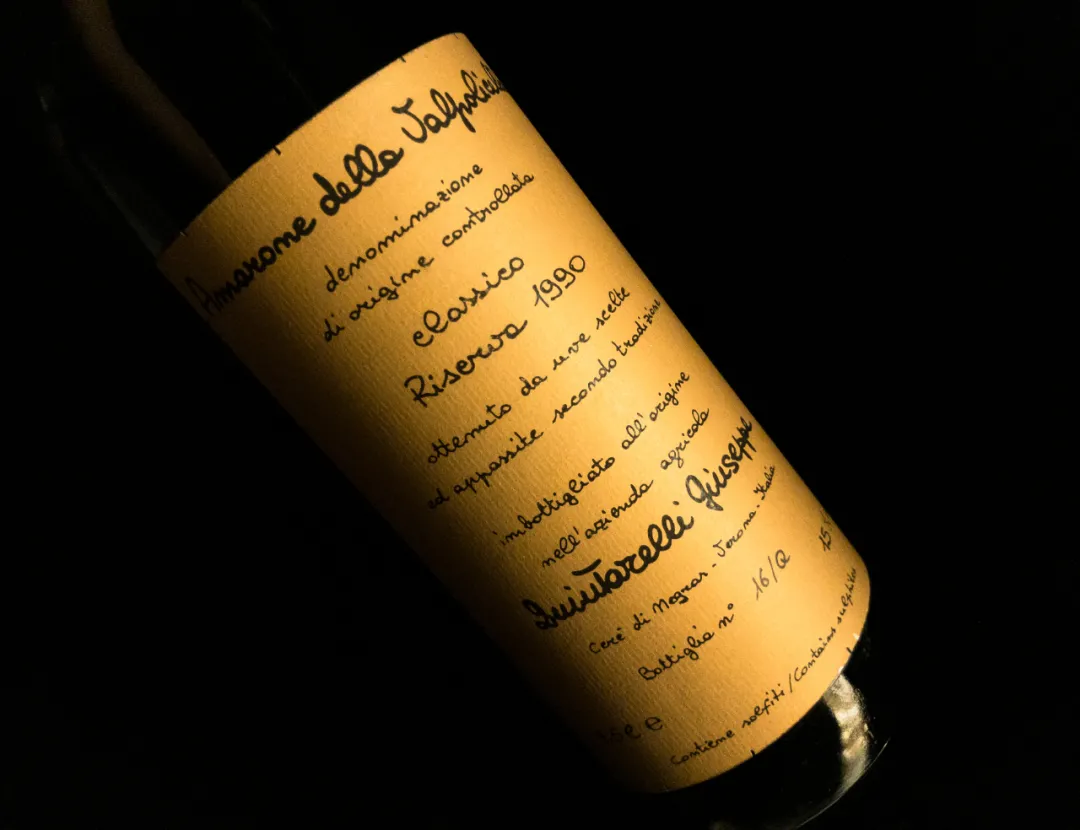 Amarone della Valpolicella
denominazione
di origine controllata
classico
Riserva 1990
ottenuto da uve scelte
ed appassite secondo tradizione
imbottigliato all'origine
nell'azienda agricola
Quintarelli Giuseppe
Cerè di Negrar - Verona - Italia
Bottiglia n° 16/Q 15
5l e
Contiene solfiti/Contains sulphites